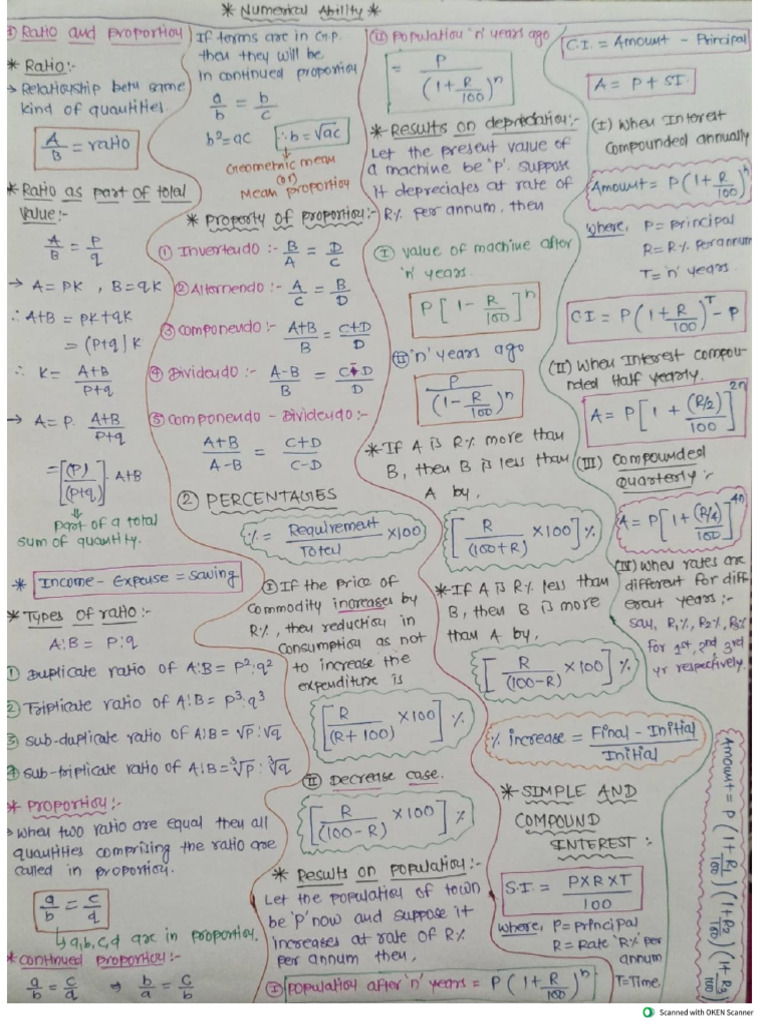 * Numerical Ability *
① Ratio and Proportion
* Ratio:-
→ Relationship betn same
kind of quantities.
A/B = ratio
* Ratio as part of total
value:-
A/B = P/q
→ A = PK , B = qK
∴ A+B = PK + qK
= (P+q) K
∴ K = A+B/P+q
→ A = P. A+B/P+q
= [(P)/(P+q)] . A+B
Part of a total
sum of quantity.
* Income - Expense = saving
* Types of ratio:-
A:B = P:q
① Duplicate ratio of A:B = p²:q²
② Triplicate ratio of A:B = p³:q³
③ Sub-duplicate ratio of A:B = √p : √q
④ Sub-triplicate ratio of A:B = ∛p : ∛q
* Proportion:-
→ When two ratio are equal then all
quantities comprising the ratio are
called in proportion.
a/b = c/d
↳ a,b,c,d are in proportion.
* Continued proportion:-
a/b = c/d ⇒ b/a = c/b
If terms are in G.P.
then they will be
in continued proportion
a/b = b/c
b² = ac ∴ b = √ac
Geometric mean
(or)
Mean proportion
* Property of proportion:-
① Invertendo :- B/A = D/C
② Alternendo :- A/C = B/D
③ Componendo :- A+B/B = C+D/D
④ Dividendo :- A-B/B = C-D/D
⑤ Componendo - Dividendo:-
A+B/A-B = C+D/C-D
② PERCENTAGES
% = Requirement/Total ×100
① If the price of
commodity increases by
R%, then reduction in
consumption as not
to increase the
expenditure is
[R/(R+100) ×100] %
Ⅱ Decrease case.
[R/(100-R) ×100] %
* Results on population:-
Let the population of town
be 'P' now and suppose it
increases at rate of R%
per annum then,
Ⅰ Population after 'n' years = P(1+R/100)ⁿ
Ⅱ Population 'n' years ago
= P/(1+R/100)ⁿ
* Results on depreciation:-
Let the present value of
a machine be 'P'. suppose
it depreciates at rate of
R% per annum, then
Ⅰ value of machine after
'n' years.
P[1 - R/100]ⁿ
Ⅱ 'n' years ago
P/(1-R/100)ⁿ
* If A is R% more than
B, then B is less than
A by,
[R/(100+R) ×100] %
* If A is R% less than
B, then B is more
than A by,
[R/(100-R) ×100] %
% increase = Final - Initial/Initial
* SIMPLE AND
COMPOUND
INTEREST :-
S.I. = P×R×T/100
where, P = Principal
R = Rate 'R%' per
annum
T = Time
C.I. = Amount - Principal
A = P + SI.
(I) When Interest
compounded annually
Amount = P(1+R/100)ⁿ
where, P = Principal
R = R% per annum
T = 'n' years.
CI = P(1+R/100)ᵀ - P
(II) When Interest compou-
nded Half yearly.
A = P[1 + (R/2)/100]²ⁿ
(III) Compounded
Quarterly :-
A = P[1 + (R/4)/100]⁴ⁿ
(IV) When rates are
different for diff
erent years :-
say, R₁%, R₂%, R₃%
for 1st, 2nd, 3rd
yr respectively.
Amount = P(1+R₁/100)(1+R₂/100)(1+R₃/100)
Scanned with OKEN Scanner